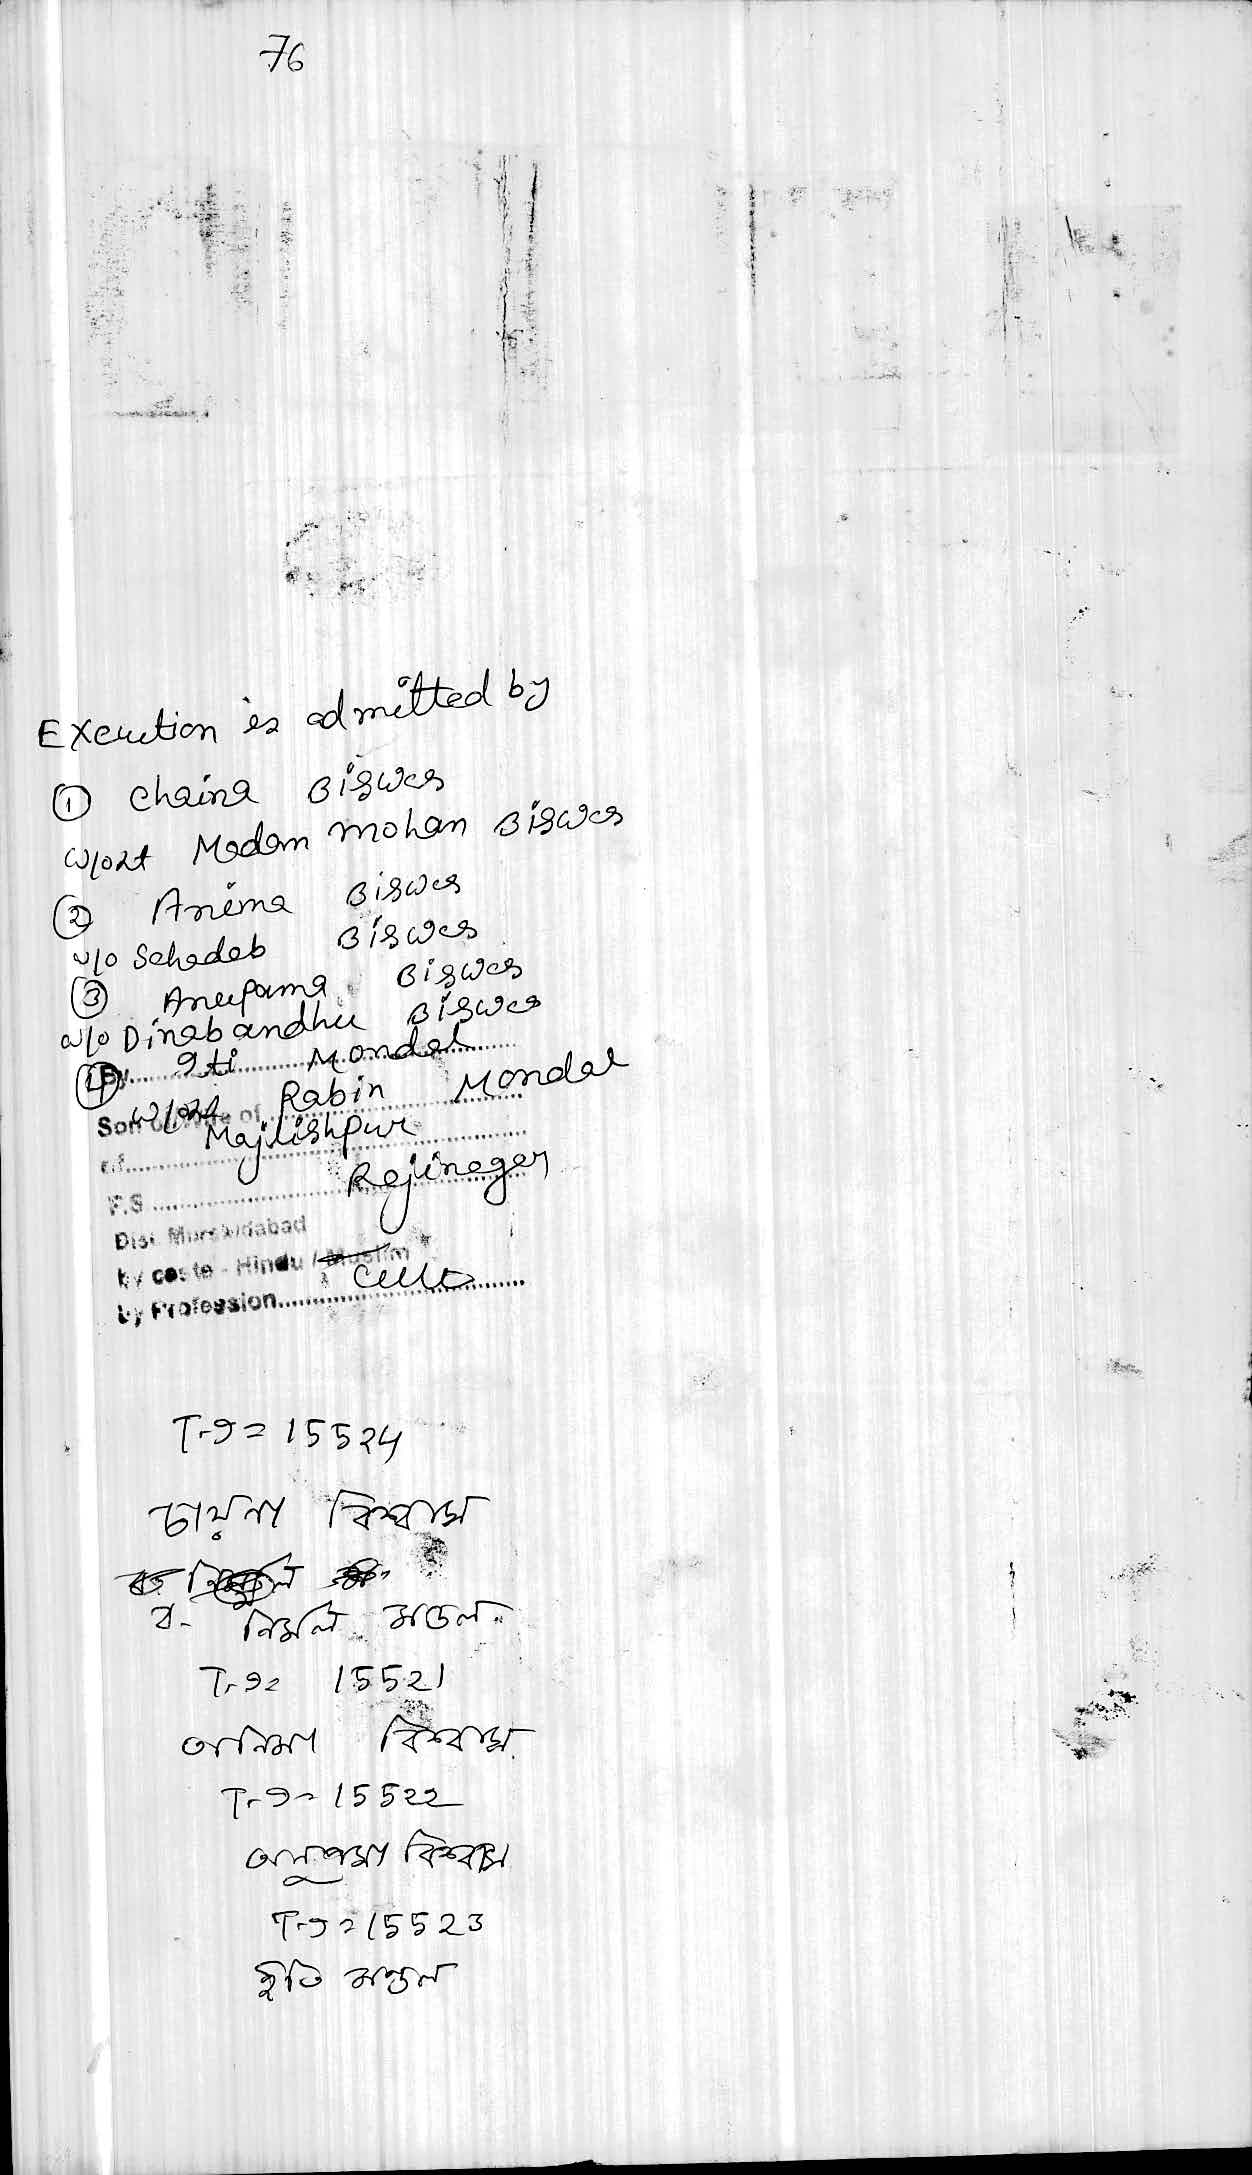 76
Execution is admitted by
① Chaina Biswas
W/o Lt Madan Mohan Biswas
② Anima Biswas
W/o Sahadeb Biswas
③ Anupama Biswas
W/o Dinabandhu Biswas
④ By Iti Mondal
W/o Rabin Mondal
Son / Wife of
of Majlishpur
P.S Rejinagar
Dist. Murshidabad
by caste - Hindu / Muslim
by Profession Cult
T.I = 15524
চায়না বিশ্বাস
ব- নির্মল মন্ডল
T.I = 15521
অনিমা বিশ্বাস
T.I = 15522
অনুপমা বিশ্বাস
T.I = 15523
ইতি মন্ডল